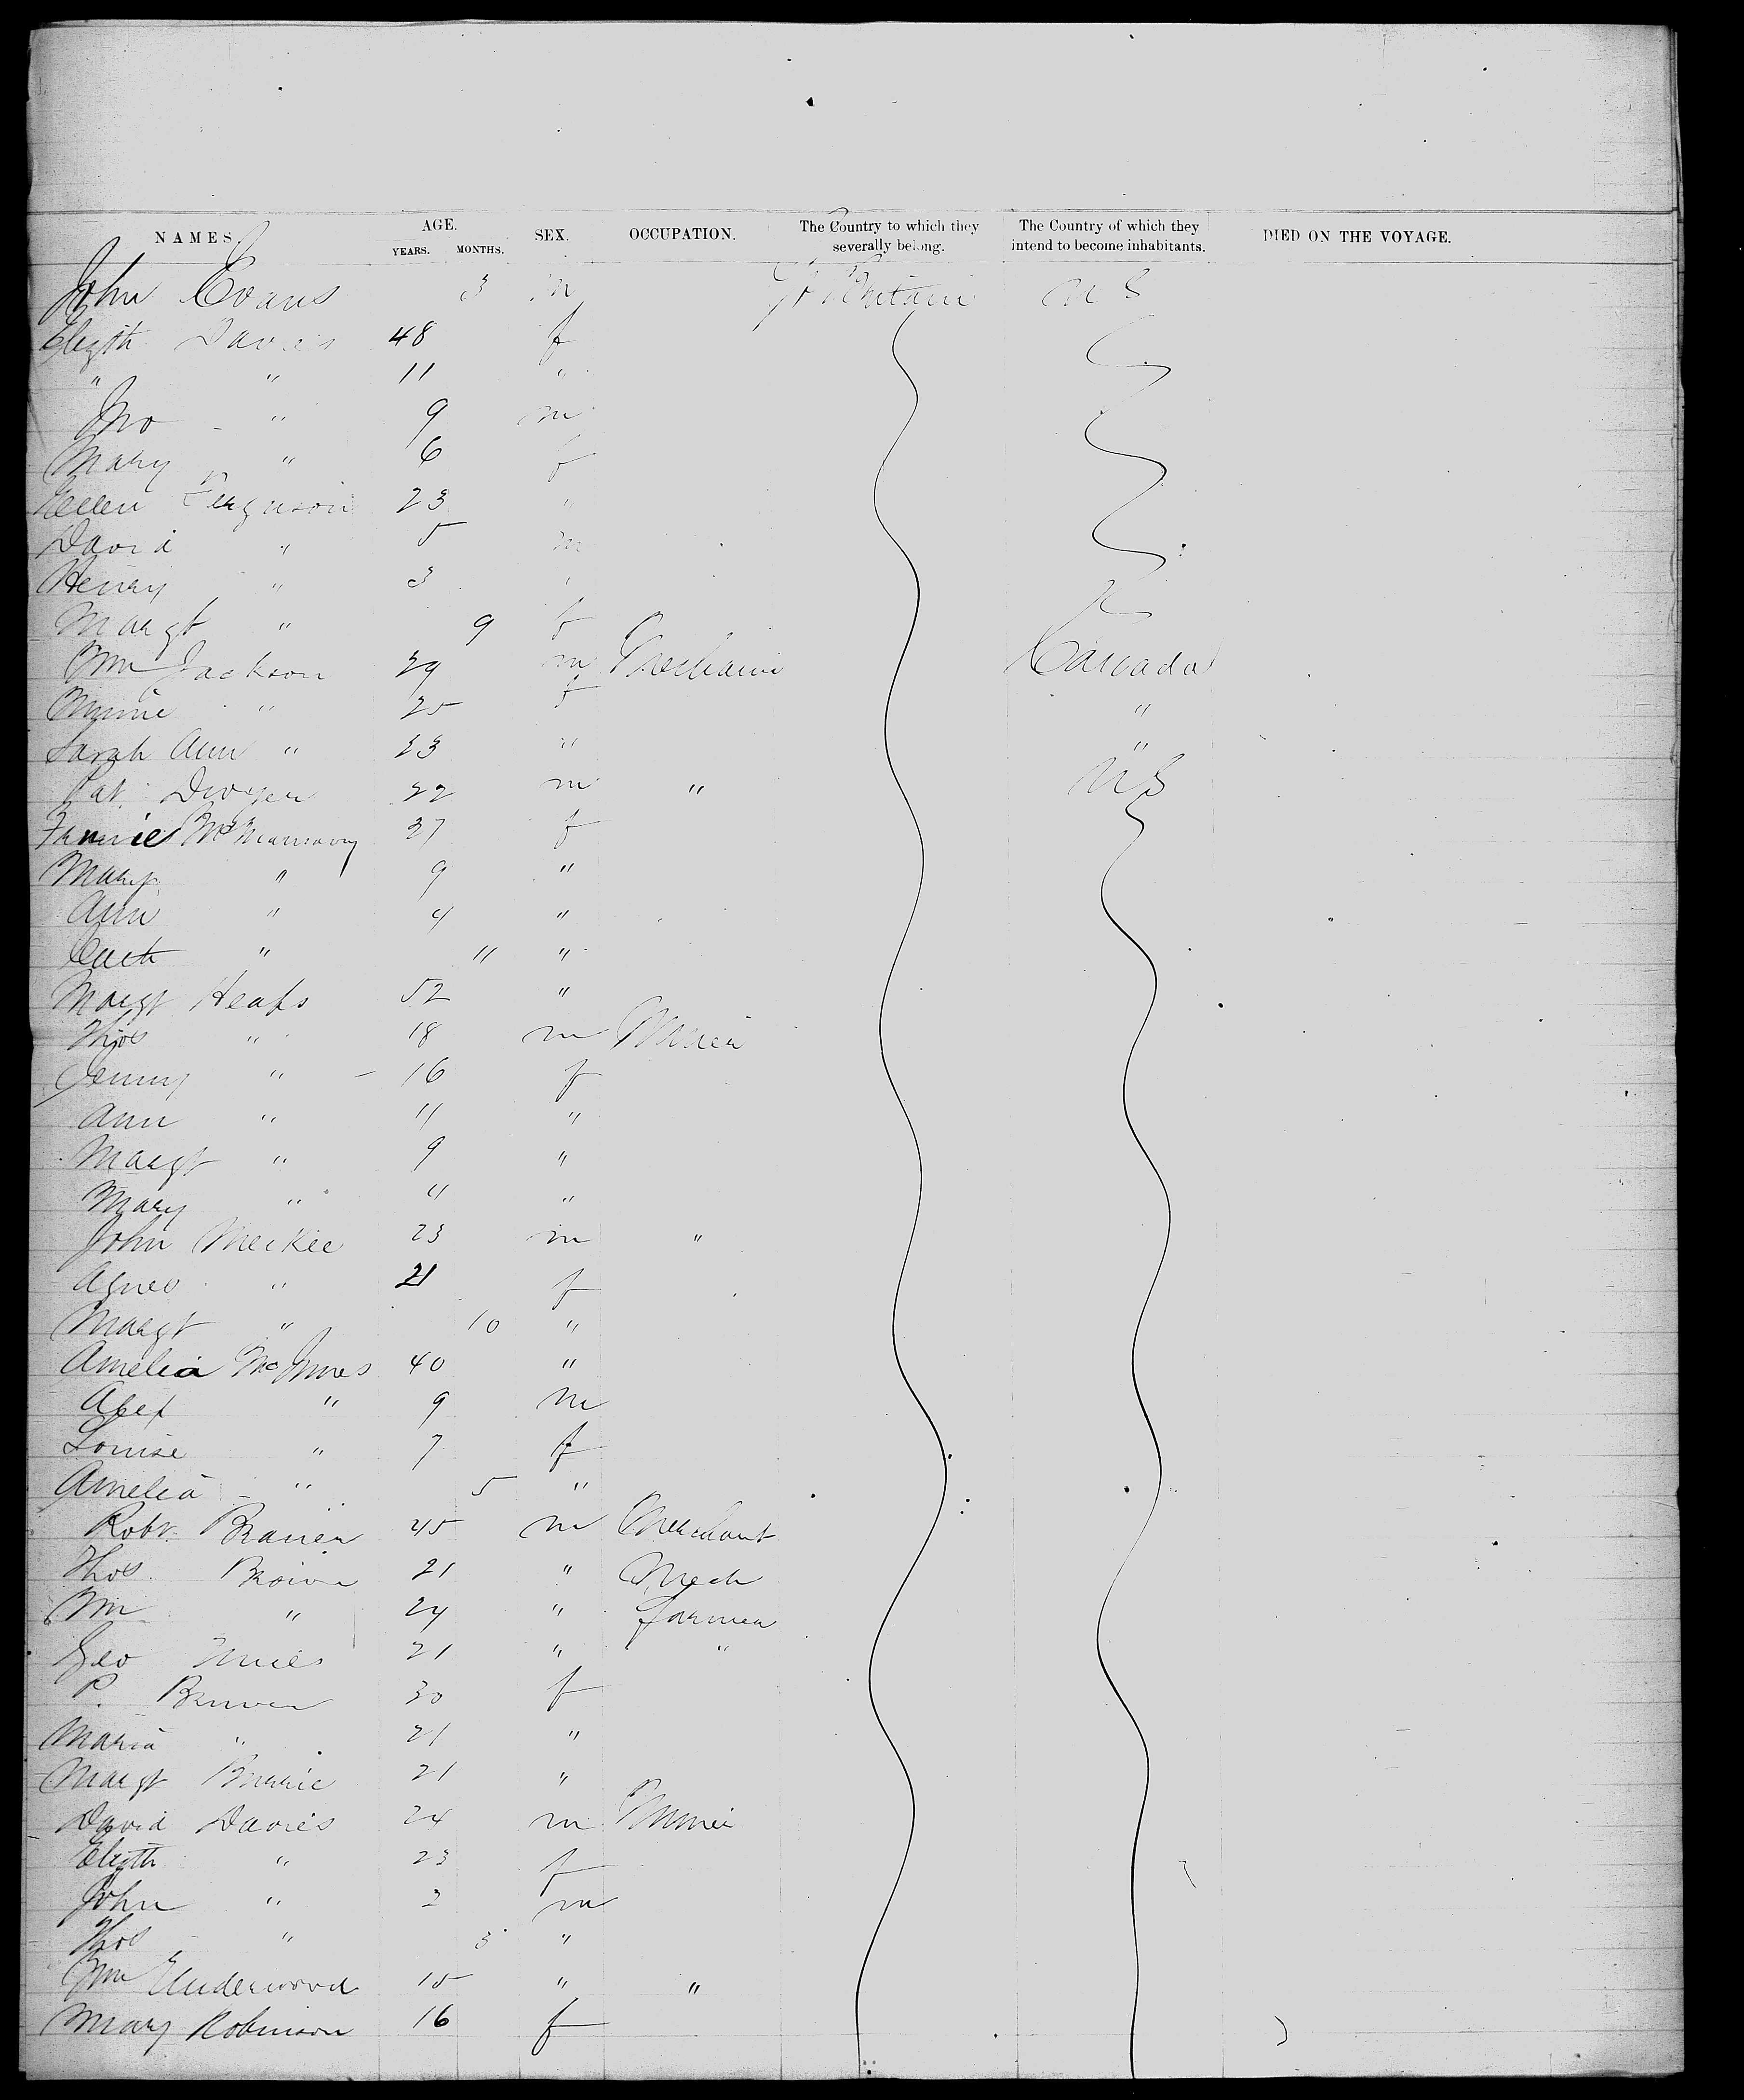 NAMES. AGE. YEARS. MONTHS. SEX. OCCUPATION. The Country to which they severally belong. The Country of which they intend to become inhabitants. DIED ON THE VOYAGE.
John Evans 3 m Gt Britain U S
Elizth Davies 48 f
" " 11 "
Jno " 9 m
Mary " 6 f
Ellen Ferguson 23 "
David " 5 m
Henry " 3 "
Margt " 9 f
Wm Jackson 29 m Mechanic Canada
Minnie " 25 f "
Sarah Ann " 23 " "
Pat. Dwyer 22 m " U S
Fannie 27 f
Mary " 9 "
Ann " 4 "
Cath " 11 "
Margt Heaps 52 "
Thos " 18 m Miner
Jenny " 16 f
Ann " 11 "
Margt " 9 "
Mary " 4 "
John McKee 23 m "
Agnes " 21 f
Margt " 10 "
Amelia McInnes 40 "
Alex " 9 m
Louise " 7 f
Amelia " 5 "
Robt. 45 m Merchant
Thos. Brown 21 " Mech
Wm " 24 " Farmer
Geo 21 " "
P. 30 f
Maria " 21 "
Margt 21 "
David Davies 24 m Miner
Elizth " 23 f
John " 2 m
Thos " 3 "
Wm Underwood 15 " "
Mary Robinson 16 f